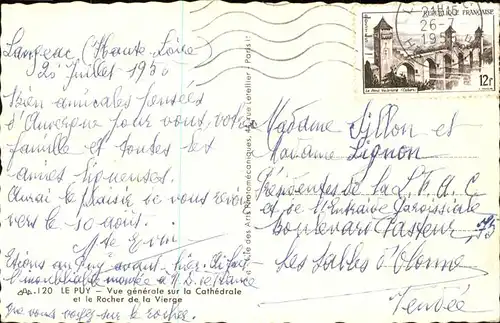 Langeac (Haute Loire)
25 Juillet 195
Bien amicales pensées
d'Auvergne pour vous, votre
famille et toutes les
amies ligueuses.
Aurai le plaisir de vous revoir
vers le 10 août.
Etions au Puy avant hier.
N. D. de France
que vous voyez sur le rocher.
120 LE PUY – Vue générale sur la Cathédrale
et le Rocher de la Vierge
des Arts Photomécaniques, 44, rue Letellier - Paris
21H
26-
195
REPUBLIQUE FRANÇAISE
Le Pont Valentré (Cahors)
12F
Madame Sillon et
Madame Lignon
Présidentes de la L.F.A.C
et de l'Entraide Paroissiale
Boulevard Pasteur
Les Sables d'Olonne
Vendée